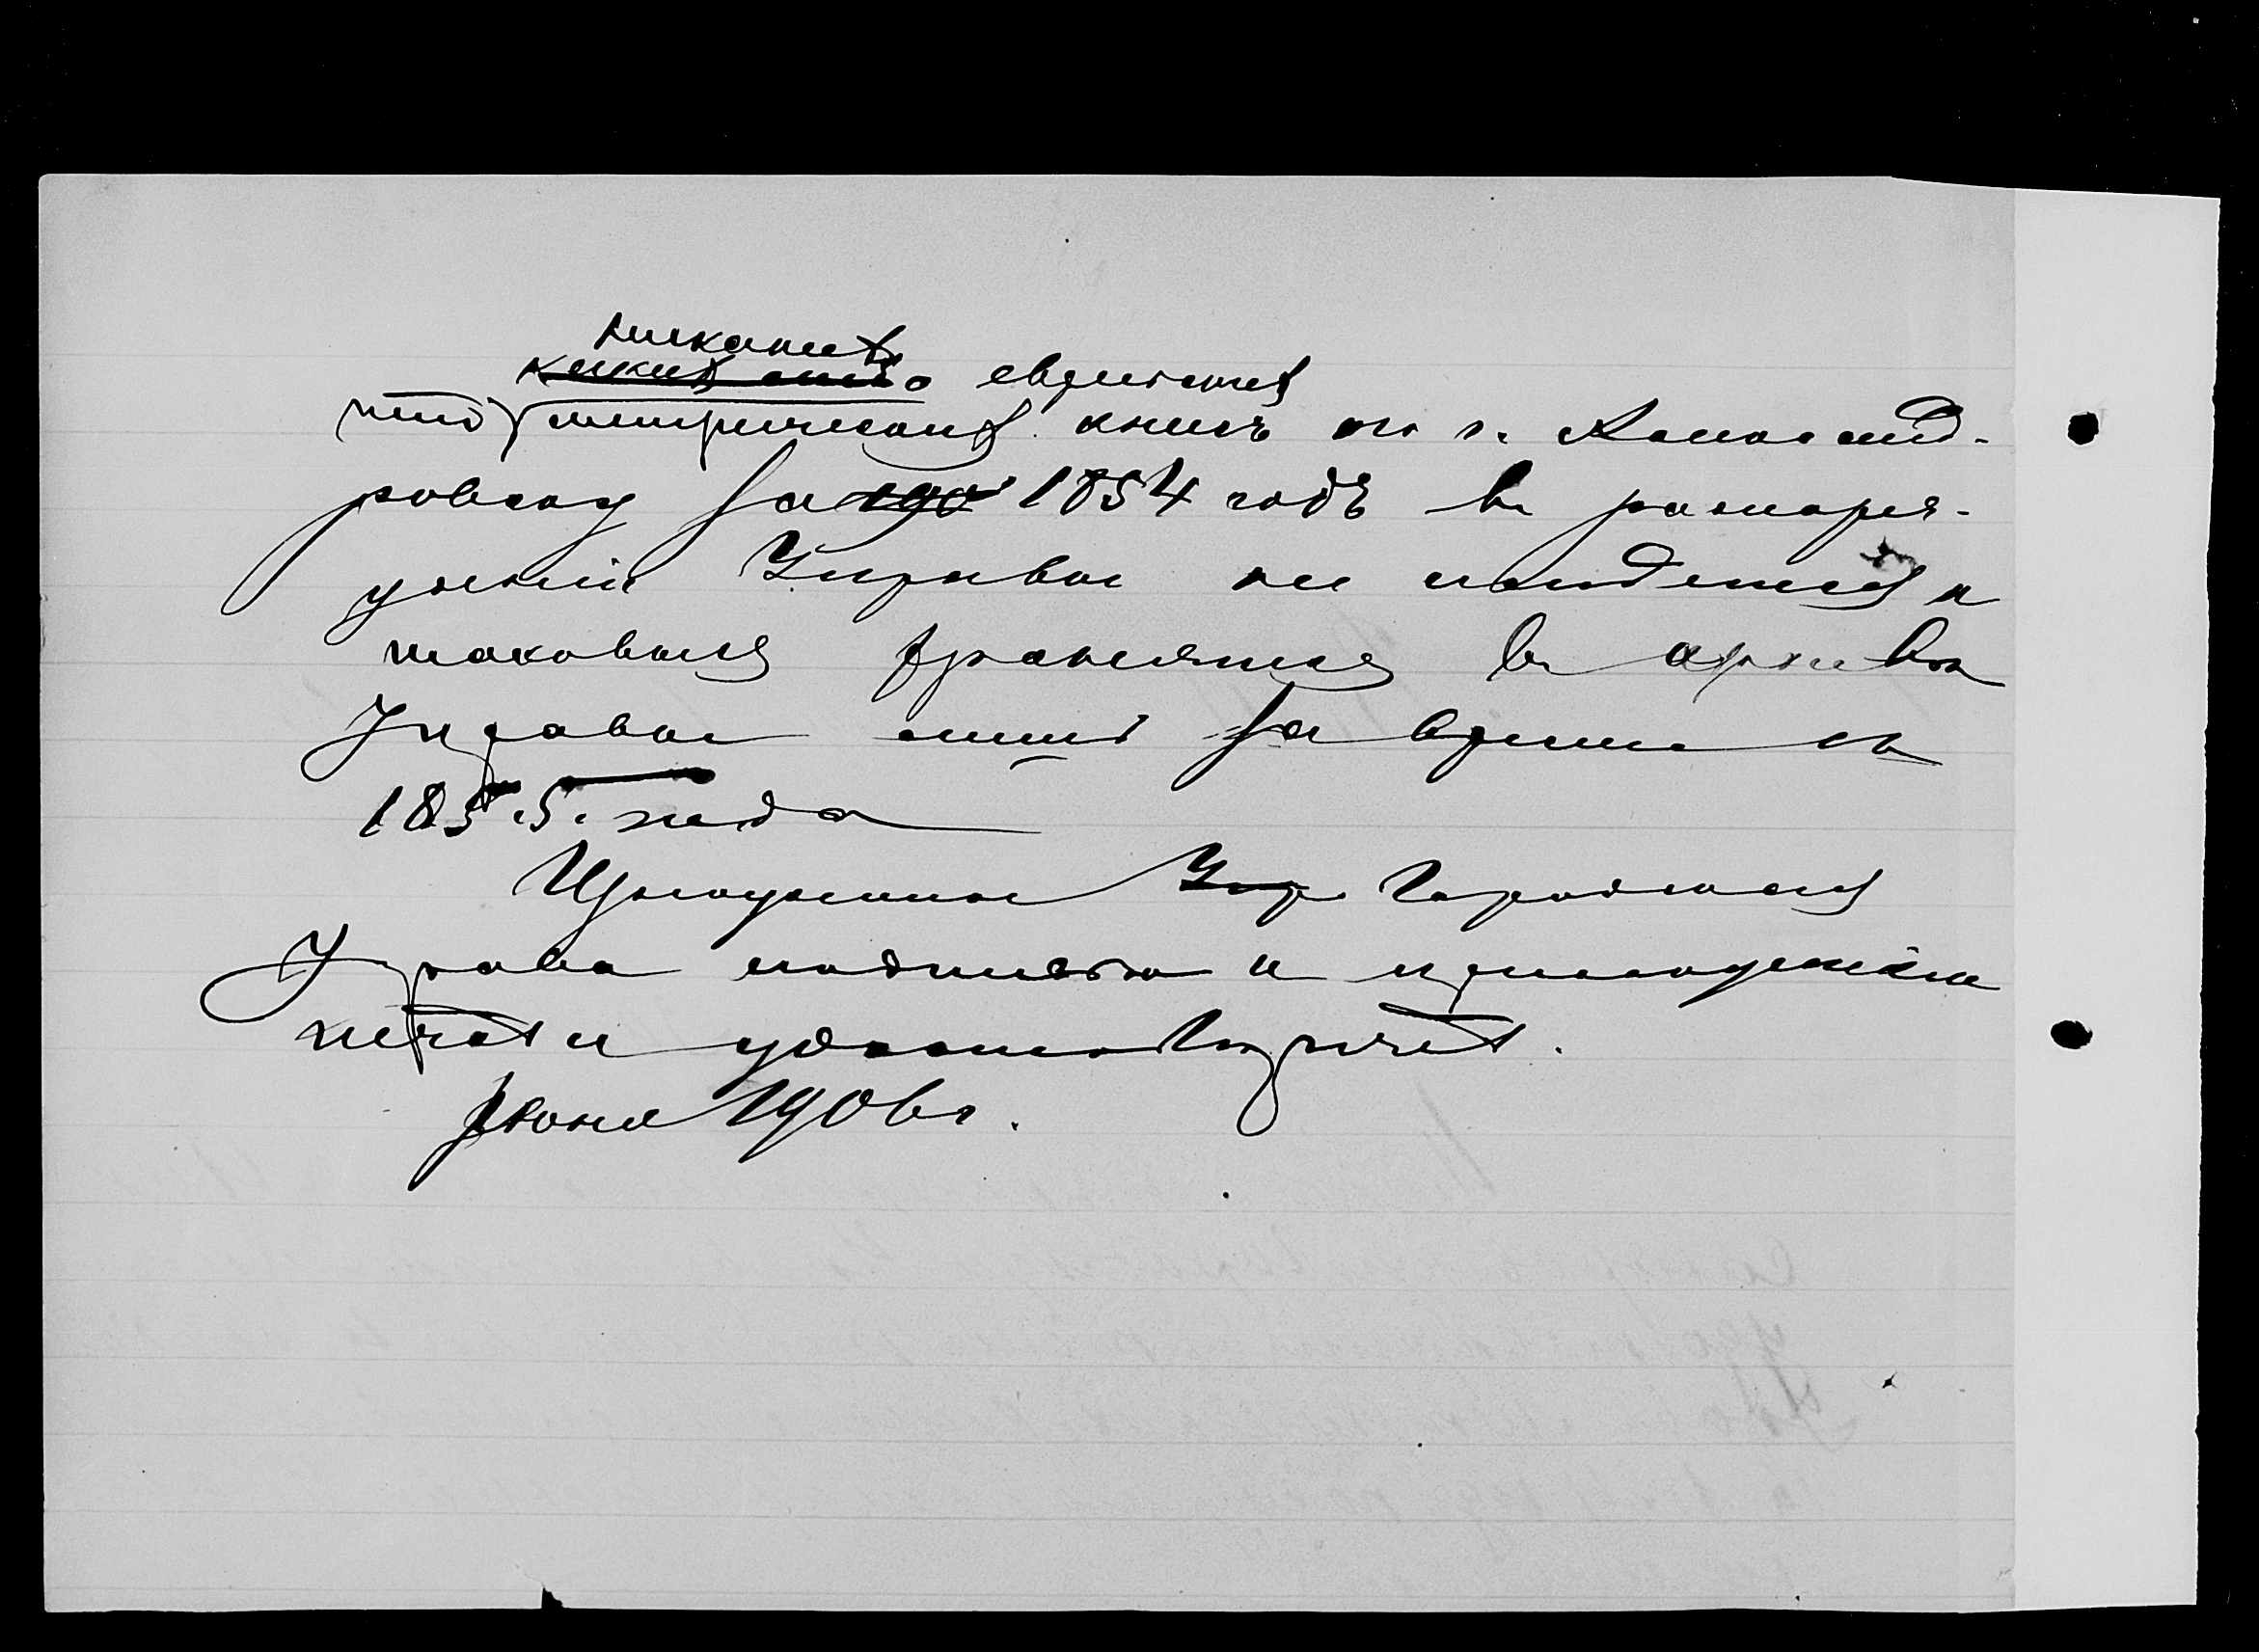 никакихъ
еврейскихъ
что метрическихъ книгъ по г. Александ-
ровску за 1854 годъ въ распоря-
женіи Управы не имѣется и
таковыя хранятся въ архивѣ
Управы лишь за время съ
1855. года
Изложенное Упр Городская
Управа подписью и приложеніемъ
печати удостовѣряетъ.
Іюня 1906 г.